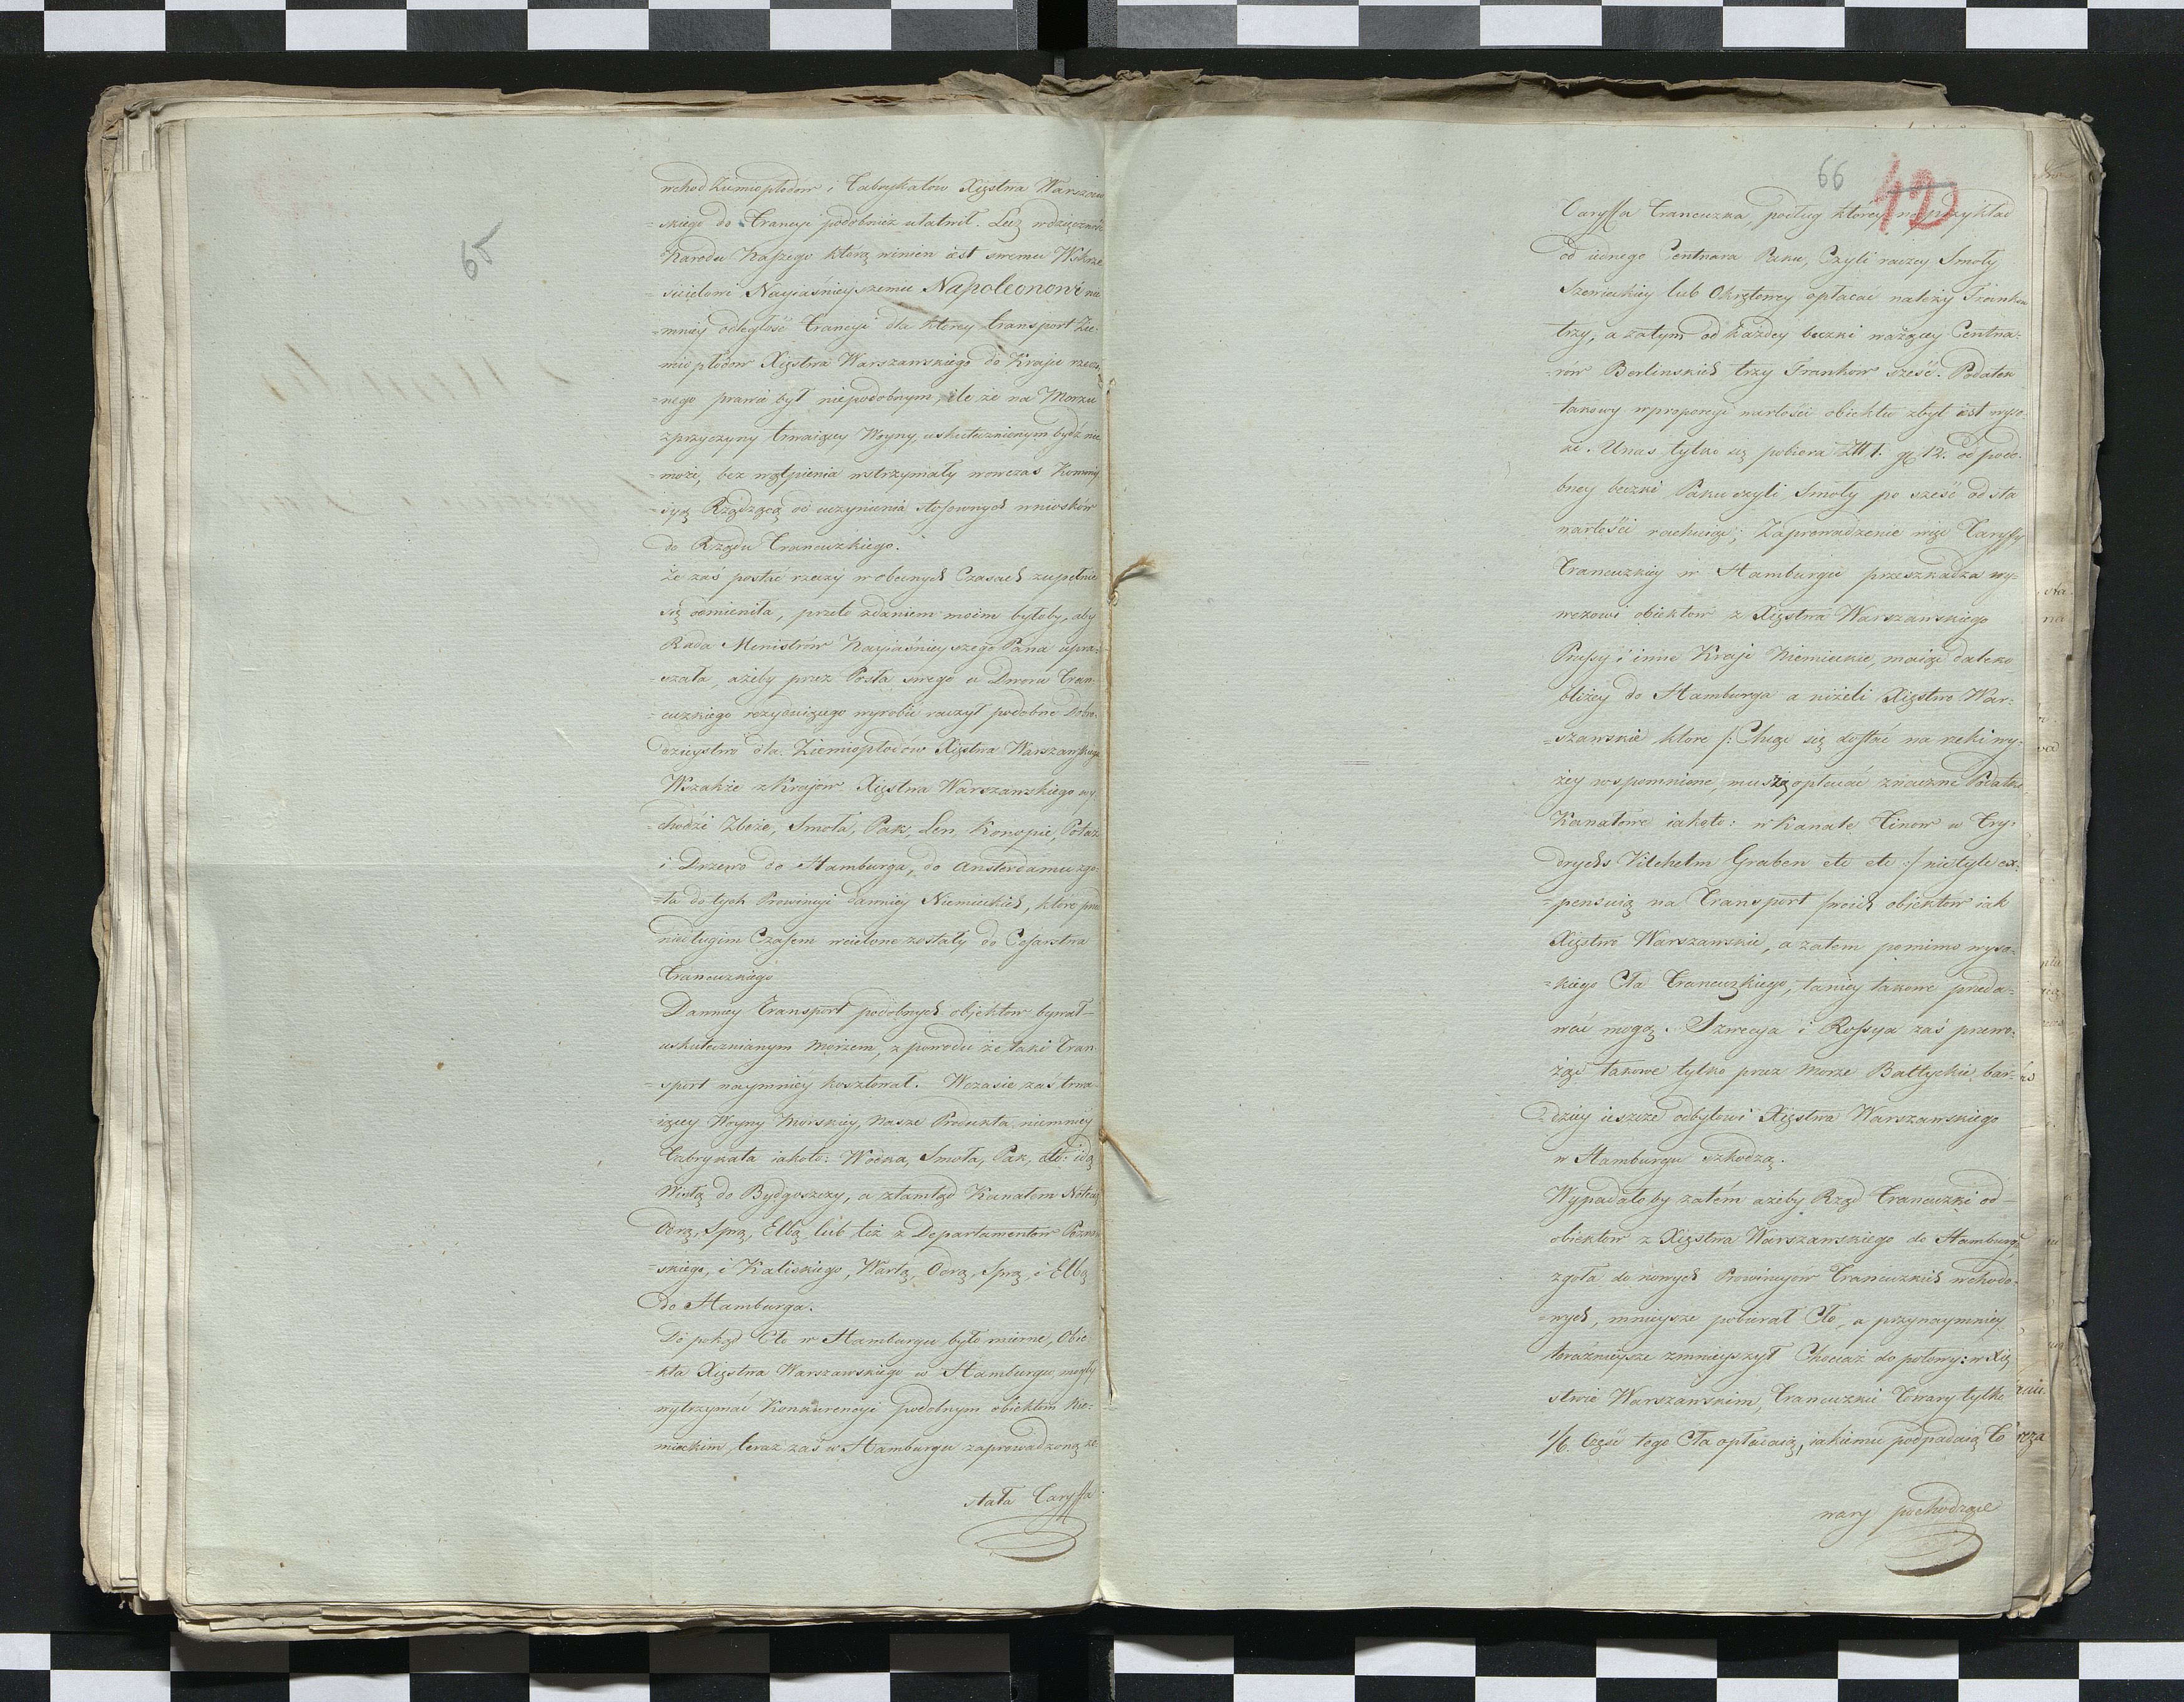 65
wchod Ziemiopłodów i Fabrykatów Xięstwa Warszaw
=skiego do Francyi podobnież ułatwił. Lecz wdzięczność
Narodu Naszego którą winien iest swemu Wskrze
=sicielowi Nayiaśnieyszemu Napoleonowi nie
=mniey odległość Francyi dla ktorey transport Zie
mio płodow Xięstwa Warszawskiego do Kraju rzeczo
=nego prawie był niepodobnym, ile że na Morzu
z przyczyny trwaiącey Woyny, uskutecznionym bydź nie
=może, bez wątpienia wstrzymały wowczas Kommis
=syą Rządzącą od uczynienia stosownych wniosków
do Rządu Francuzkiego.
Że zaś postać rzeczy w obecnych Czasach zupełnie
się odmieniła, przeto zdaniem moim byłoby, aby
Rada Ministrów Nayiaśnieyszego Pana upra=
=szała, ażeby przez Posła swego u Dworu Fran=
=cuzkiego rezyduiącego wyrobić raczył podobne Dobro=
dzieystwo dla Ziemiopłodów Xięstwa Warszawskiego
Wszakże z Krajów Xięstwa Warszawskiego wy
=chodzi Zboże, Smoła, Pak, Len, Konopie, Potaż
i Drzewo do Hamburga, do Amsterdamu zgo
=ła do tych Prowincyi dawniey Niemieckich, które przed
niedługim Czasem wcielone zostały do Cesarstwa
Francuzkiego
Dawniey Transport podobnych objektow bywał
uskutecznianym Morzem, z powodu że taki Tran
=sport naymniey kosztował. W czasie zaś trwa
=iącey Woyny Morskiey, Nasze Produkta niemniey
Fabrykata iakoto: Wodka, Smoła, Pak, etc: idą
Wisłą do Bydgoszczy, a ztamtąd Kanałem Notecią
Odrą, Sprą, Elbą lub też z Departamentow Poznań
=skiego, i Kaliskiego, Wartą, Odrą, Sprą, i Elbą
do Hamburga.
Do pokąd Cło w Hamburgu było mierne, Obie
=kta Xięstwa Warszawskiego w Hamburgu, mogły
wytrzymać Konkurencyi podobnym obiektom Nie=
mieckim, teraz zaś w Hamburgu zaprowadzoną zo
stała Taryffa
66
42
Taryffa Francuzka, podług którey na przykład
od iednego Centnara Paku, Czyli raczey Smoły
Szewieckiey lub Okrętowey opłacać należy Franków
trzy, a zatym od każdey beczki ważącey Centna=
=rów Berlinskich trzy Frankow sześć. Podatek
takowy w proporcyi wartości obiektu zbyt iest wyso
ki. U nas tylko się pobiera Złł 1. gr 12. od podo=
bney beczki Paku czyli Smoły po sześć od sta
wartości rachuiąc; Zaprowadzenie więc Taryffy
Francuzkiey w Hamburgu przeszkadza wy=
wozowi obiektow z Xięstwa Warszawskiego
Prussy i inne Kraje Niemieckie, maiąc daleko
bliżey do Hamburga a niżeli Xięstwo War=
=szawskie ktore /: Chcąc się dostać na rzeki wy=
żey wspomnione, muszą opłacać znaczne Podatki
Kanałowe iakoto: w Kanale Finow u Fry=
drychs Vilchelm Graben etc etc :/ nietyle ex=
=pensuią na Transport swoich objektów iak
Xięstwo Warszawskie, a zatem pomimo wyso=
=kiego Cła Francuzkiego, taniey takowe przeda=
wać mogą. Szwecya i Rossya zaś przewo=
żąc takowe tylko przez Morze Bałtyckie, bar=
dziey ieszcze odbytowi Xięstwa Warszawskiego
w Hamburgu szkodzą.
Wypadałoby zatém ażeby Rząd Francuzki od
obiektow z Xięstwa Warszawskiego do Hamburga
zgoła do nowych Prowincyów Francuzkich wchodo=
=wych, mnieysze pobierał Cło, a przynaymniey
teraźnieysze zmnieyszył Chociaż do połowy: w Xię
stwie Warszawskim, Francuzkie Towary tylko
1/6. Część tego Cła opłacaią, iakiemu podpadaią To
wary pochodzące